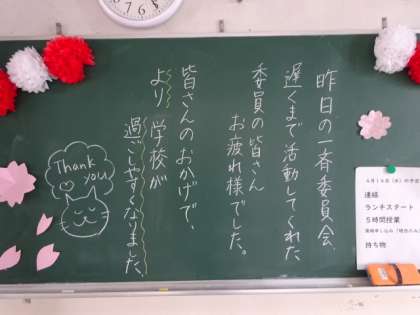 昨日の一斉委員会、
遅くまで活動してくれた
委員の皆さん
お疲れ様でした。
皆さんのおかげで、
より学校が
過ごしやすくなりました。
Thank
you
連絡
ランチスタート
5時間授業
持ち物